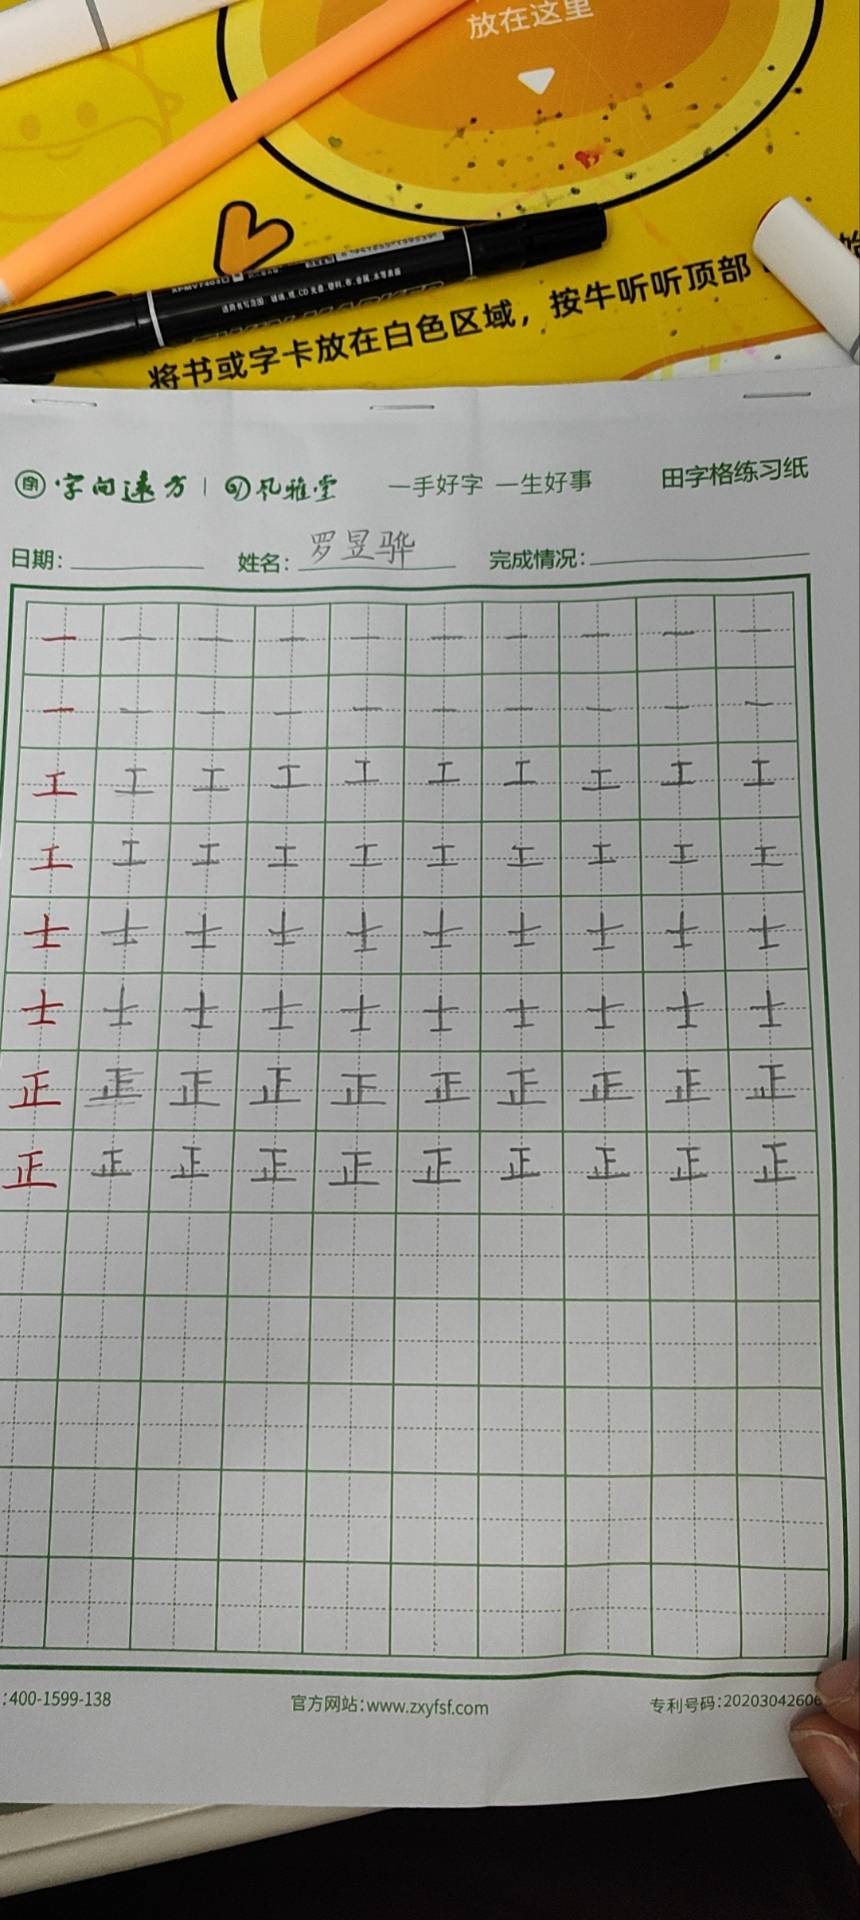 放在这里
适用书写范围:玻璃.线.CD光盘.塑料.布.金属.木等表面
将书或字卡放在白色区域，按牛听听顶部
字向远方 | 风雅堂 一手好字 一生好事 田字格练习纸
日期： 姓名：罗昱骅 完成情况：
一 一 一 一 一 一 一 一 一 一
一 一 一 一 一 一 一 一 一 一
工 工 工 工 工 工 工 工 工 工
工 工 工 工 工 工 工 工 工 工
士 士 士 士 士 士 士 士 士 士
士 士 士 士 士 士 士 士 士 士
正 正 正 正 正 正 正 正 正 正
正 正 正 正 正 正 正 正 正 正
:400-1599-138 官方网站：www.zxyfsf.com 专利号码：20203042606